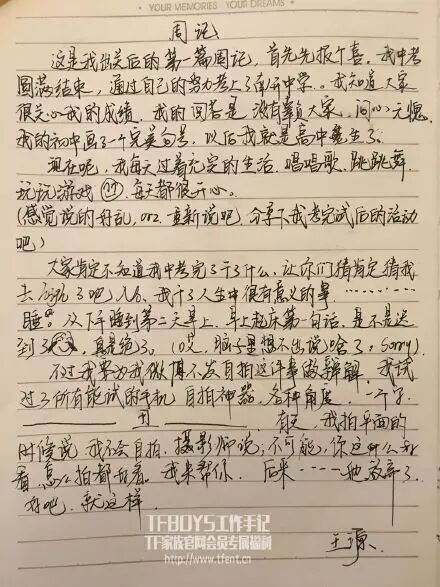 YOUR MEMORIES YOUR DREAMS
周记
这是我出关后的第一篇周记，首先先报个喜。我中考
圆满结束，通过自己的努力考上了南开中学。我知道大家
很关心我的成绩，我的回答是没有辜负大家，问心无愧。
我的初中画了一个完美句号，以后我就是高中生了。
现在呢，我每天过着充实的生活，唱唱歌，跳跳舞
玩玩游戏，每天都很开心。
(感觉说的好乱，orz，重新说吧，分享下我考完试后的活动
吧)
大家肯定不知道我中考完了干了什么，让你们猜肯定猜我
去 了吧，No，我干了人生中很有意义的事…………
睡。从下午睡到第二天早上，早上起床第一句话，是不是迟
到了，真是绝了。(哎，脑子里想不出说啥了，sorry)
不过我要为我微博不发自拍这件事做辩解，我试
过了所有能试的手机，自拍神器，各种角度，一个字
——— 丑 ——— 有天，我拍平面的
时候说，我不会自拍，摄影师说：不可能，你这么好
看，怎么拍都好看。我来帮你，后来……他放弃了
好吧，就这样
王源
TFBOYS工作手记
TF家族官网会员专属福利
http://www.tfent.cn